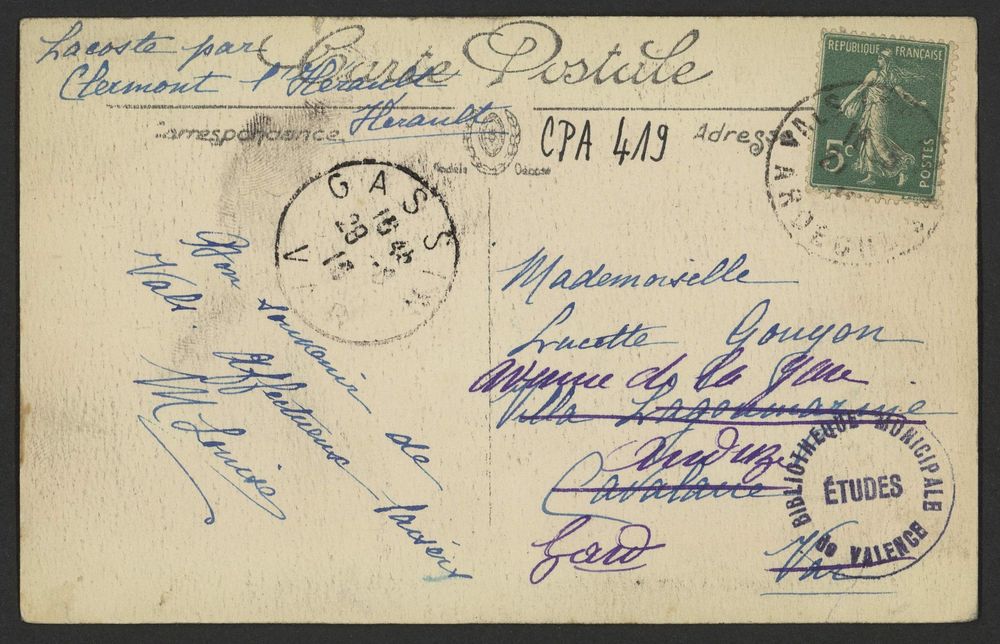 Lacoste par
Clermont l'Hérault
Hérault
Carte Postale
Correspondance
Adresse
CPA 419
RÉPUBLIQUE FRANÇAISE
5c
POSTES
VALS
ARDECHE
GASSIN
VAR
18 45
28
Bon souvenir de
Vals. Affectueux baisers
M Louise
Mademoiselle
Lucette Gouyon
avenue de la gare
Villa Lagonmarsine
Anduze
Cavalaire
Gard
Var
BIBLIOTHÈQUE MUNICIPALE
ÉTUDES
de VALENCE